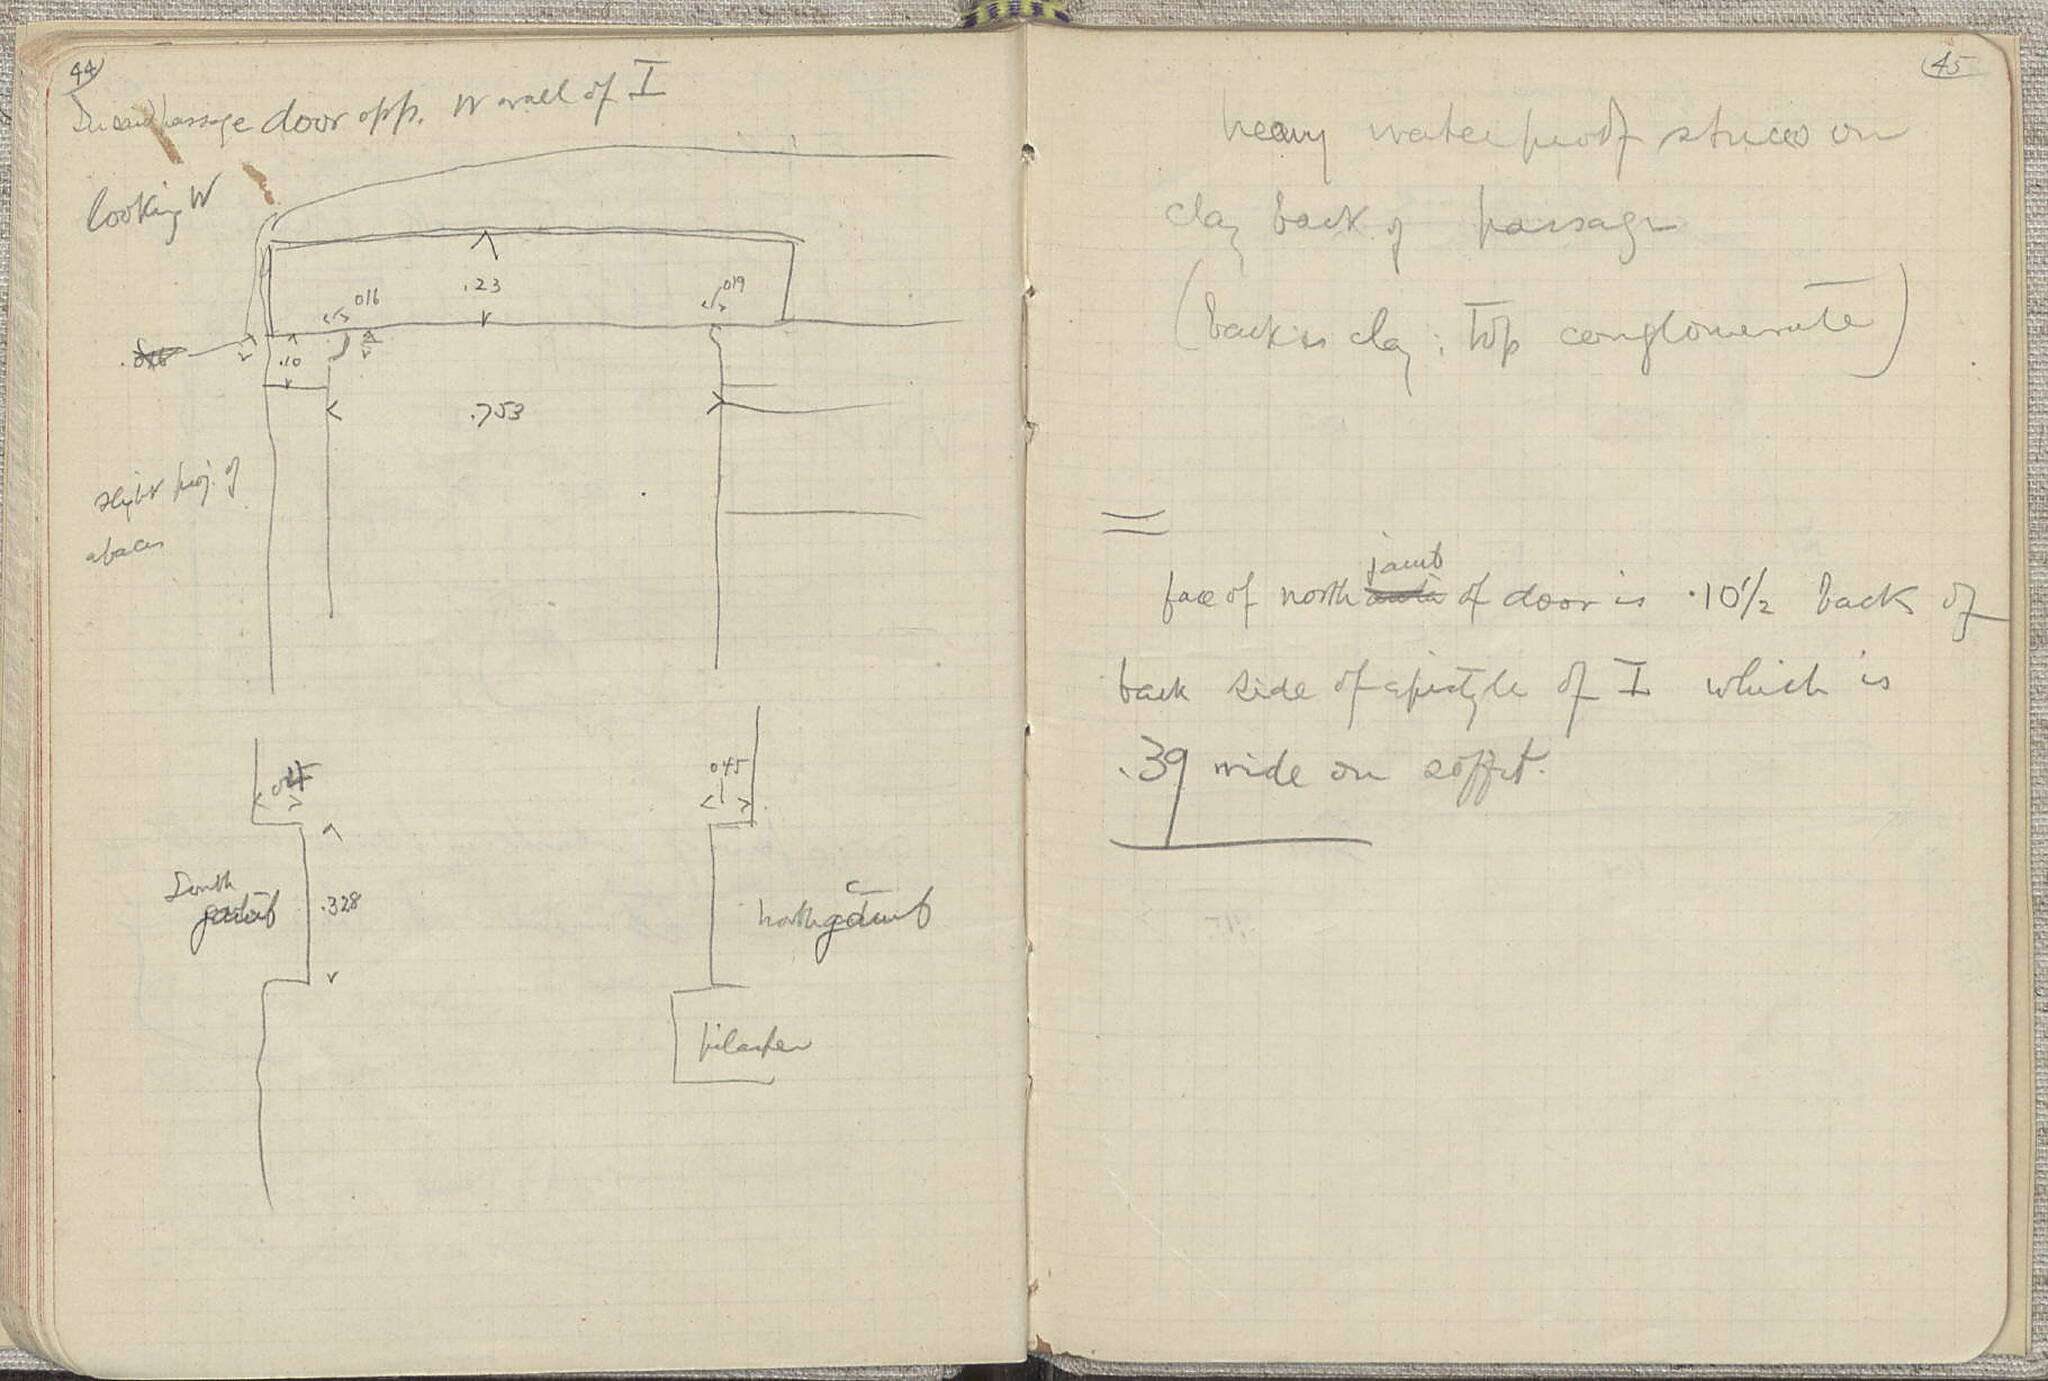 44
passage door opp. W wall of I
looking W
.23
016
019
.10
.753
slight proj. of
abacus
045
South
.328
north
pilaster
45
heavy waterproof stucco on
clay back of passage
(back is clay; top conglomerate)
jamb
face of north of door is .10½ back of
back side of epistyle of I which is
.39 wide on soffit.